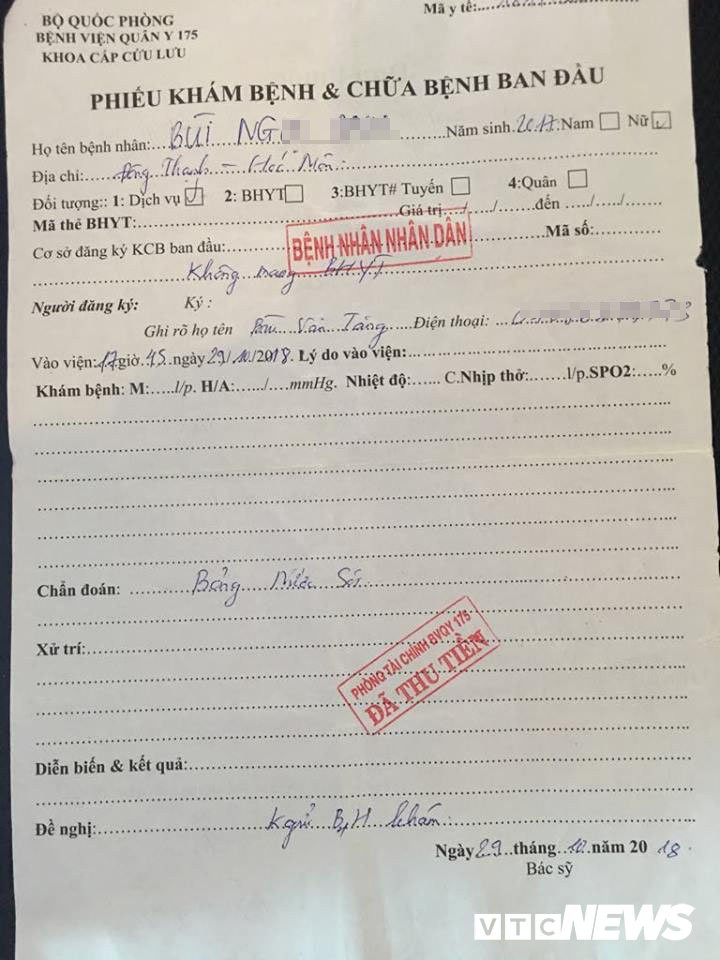 BỘ QUỐC PHÒNG
BỆNH VIỆN QUÂN Y 175
KHOA CẤP CỨU LƯU
Mã y tế:
PHIẾU KHÁM BỆNH & CHỮA BỆNH BAN ĐẦU
Họ tên bệnh nhân: BÙI NG Năm sinh. 2017 Nam Nữ
Địa chỉ: Đông Thạnh - Hóc Môn
Đối tượng:: 1: Dịch vụ 2: BHYT 3:BHYT# Tuyến 4:Quân
Mã thẻ BHYT: Giá trị ..../...../...... đến ...../...../.....
Cơ sở đăng ký KCB ban đầu: Mã số:
BỆNH NHÂN NHÂN DÂN
Không mang BHYT
Người đăng ký: Ký :
Ghi rõ họ tên Văn Tảng Điện thoại:
Vào viện: 17 giờ. 45. ngày 29/10/2018. Lý do vào viện:
Khám bệnh: M:.....l/p. H/A:....../.....mmHg. Nhiệt độ:...... C.Nhịp thở:.......l/p.SPO2:.....%
Chẩn đoán: Bỏng Nước Sôi
Xử trí:
PHÒNG TÀI CHÍNH BVQY 175
ĐÃ THU TIỀN
Diễn biến & kết quả:
Đề nghị: khám
Ngày 29 tháng 10 năm 2018
Bác sỹ
VTC NEWS